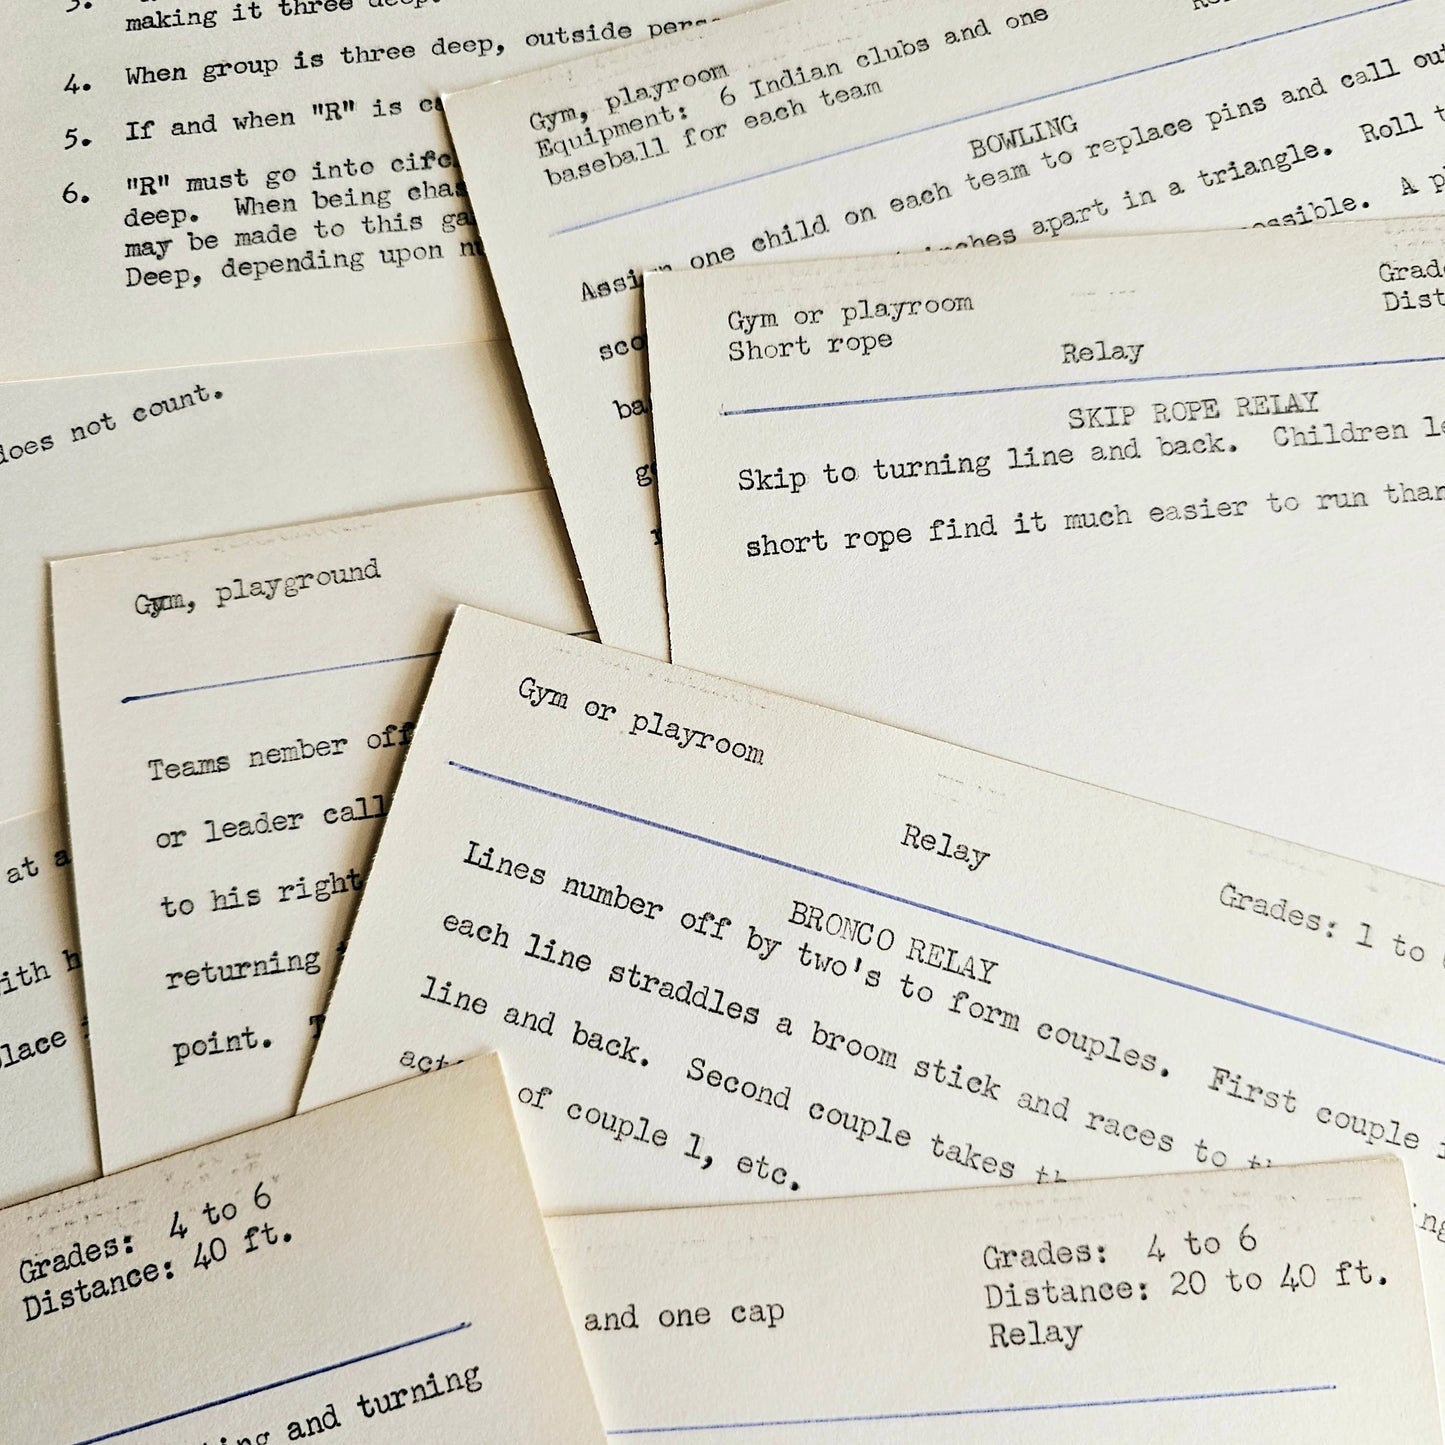 3.
making it three deep.
4. When group is three deep, outside
5. If and when "R" is
6. "R" must go into
deep. When being
may be made to this
Deep, depending upon
does not count.
Gym, playroom
Equipment: 6 Indian clubs and one
baseball for each team
BOWLING
Assign one child on each team to replace pins and call out
inches apart in a triangle. Roll
A
Gym or playroom
Short rope
Relay
SKIP ROPE RELAY
Skip to turning line and back. Children
short rope find it much easier to run than
Gym, playground
Teams nember off
or leader
to his right
returning
point.
at a
Gym or playroom
Relay
Grades: 1 to
BRONCO RELAY
Lines number off by two's to form couples. First couple
each line straddles a broom stick and races to
line and back. Second couple takes
of couple 1, etc.
Grades: 4 to 6
Distance: 40 ft.
and turning
and one cap
Grades: 4 to 6
Distance: 20 to 40 ft.
Relay